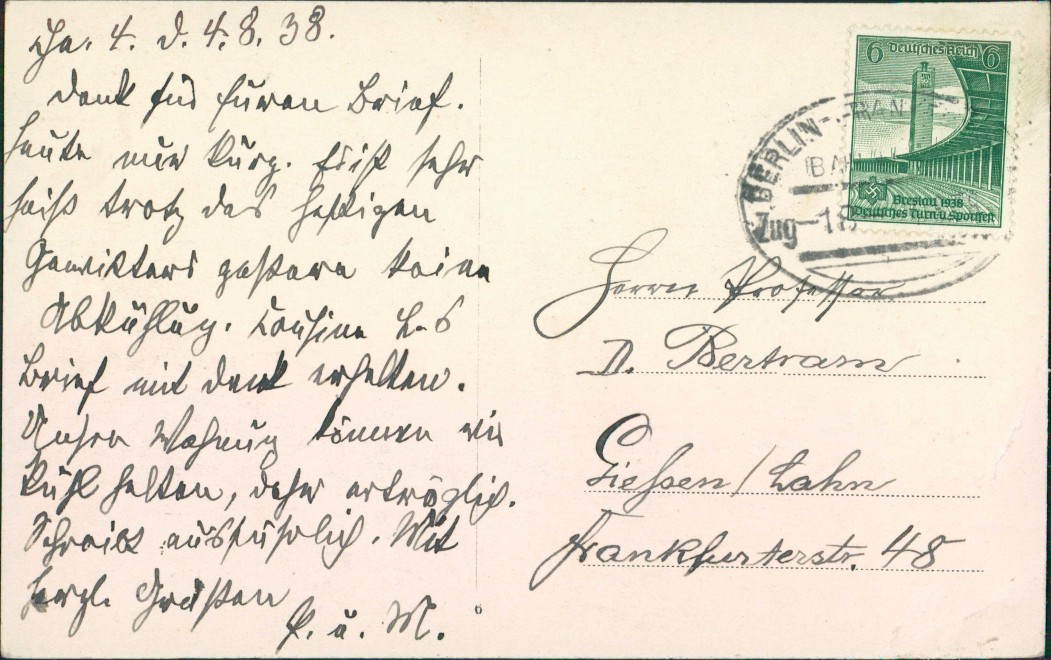 Cha. 4. d. 4.8.38.
Dank für Euren Brief.
Heute nur kurz. Es ist sehr
heiß trotz des heftigen
Gewitters gestern keine
Abkühlug. Cousine L-s
Brief mit Dank erhalten.
Unsere Wohnung können wir
kühl halten, daher erträglich.
Schreibt ausführlich. Mit
herzl. Grüßen
P. u. M.
6 Deutsches Reich 6
Breslau 1938
Deutsches Turn-u. Sportfest
BERLIN
BAH
Zug 18
Herrn Professor
D. Bertram
Giessen/Lahn
Frankfurterstr. 48